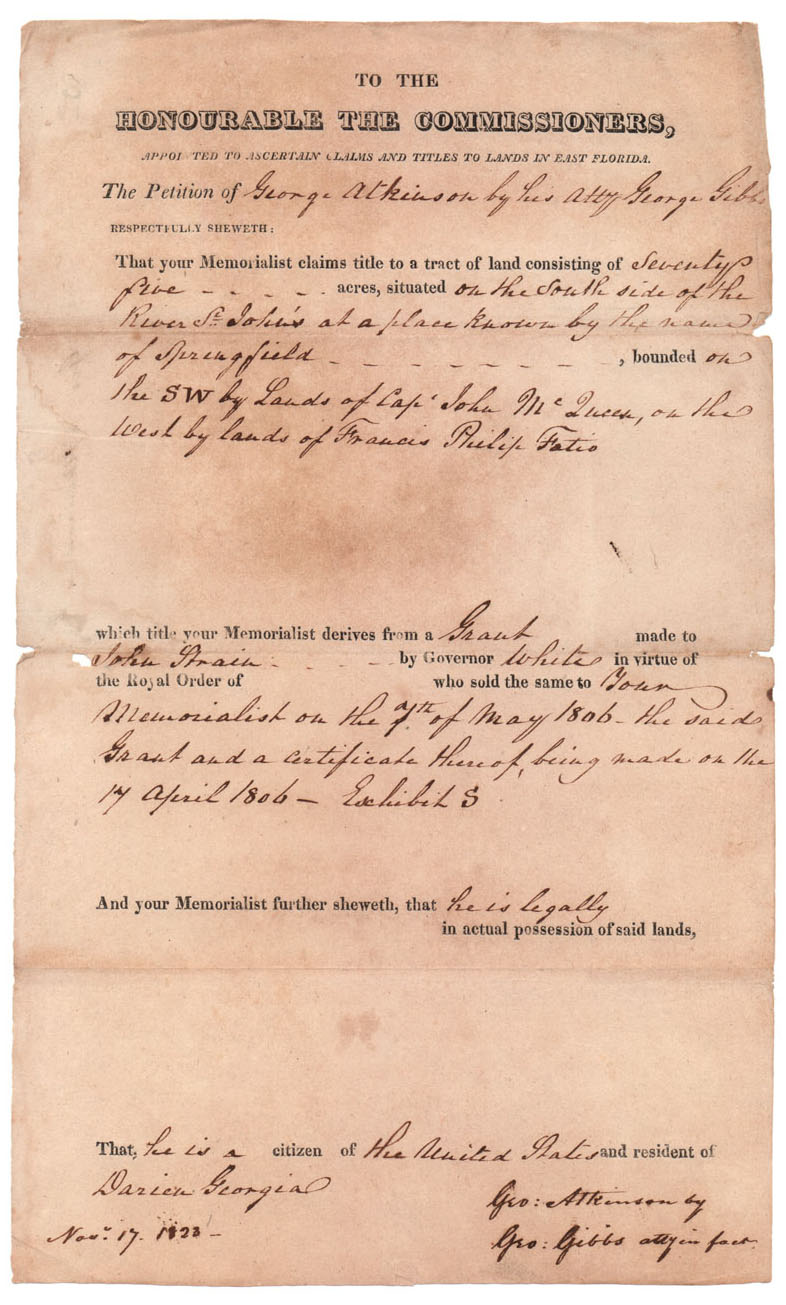 TO THE
HONOURABLE THE COMMISSIONERS,
APPOINTED TO ASCERTAIN CLAIMS AND TITLES TO LANDS IN EAST FLORIDA.
The Petition of George Atkinson by his Atty George Gibbs
RESPECTFULLY SHEWETH:
That your Memorialist claims title to a tract of land consisting of Seventy
five - - - - acres, situated on the South side of the
River St. John's at a place known by the name
of Springfield - - - - - - - - , bounded on
the SW by Lands of Capt John McQueen, on the
West by lands of Francis Philip Fatio
which title your Memorialist derives from a Grant made to
John Strain - - - - by Governor White in virtue of
the Royal Order of who sold the same to Your
Memorialist on the 7th of May 1806 - the said
Grant and a certificate thereof, being made on the
17 April 1806 — Exhibit S
And your Memorialist further sheweth, that he is legally
in actual possession of said lands,
That, he is a citizen of the United States and resident of
Darien Georgia
Geo: Atkinson by
Novr. 17. 1823 -
Geo: Gibbs atty in fact.